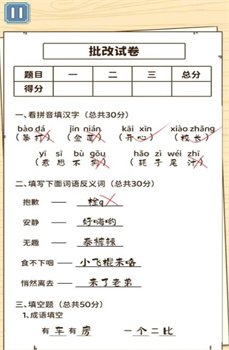 批改试卷
题目 一 二 三 总分
得分
一、看拼音填汉字（总共30分）
bào dá jìn nián kāi xīn xiào zhǎng
（暴打）（金莲）（开心）（校长）
yì sī bù gǒu hào zì wéi zhī
（意思不狗）（耗子尾汁）
二、填写下面词语反义词（总共20分）
抱歉 —— 栓q
安静 —— 好嗨哟
无趣 —— 泰裤辣
食不下咽 —— 小飞棍来咯
悄然离去 —— 来了老弟
三、填空题（总共50分）
1.成语填空
有车有房 一个二比